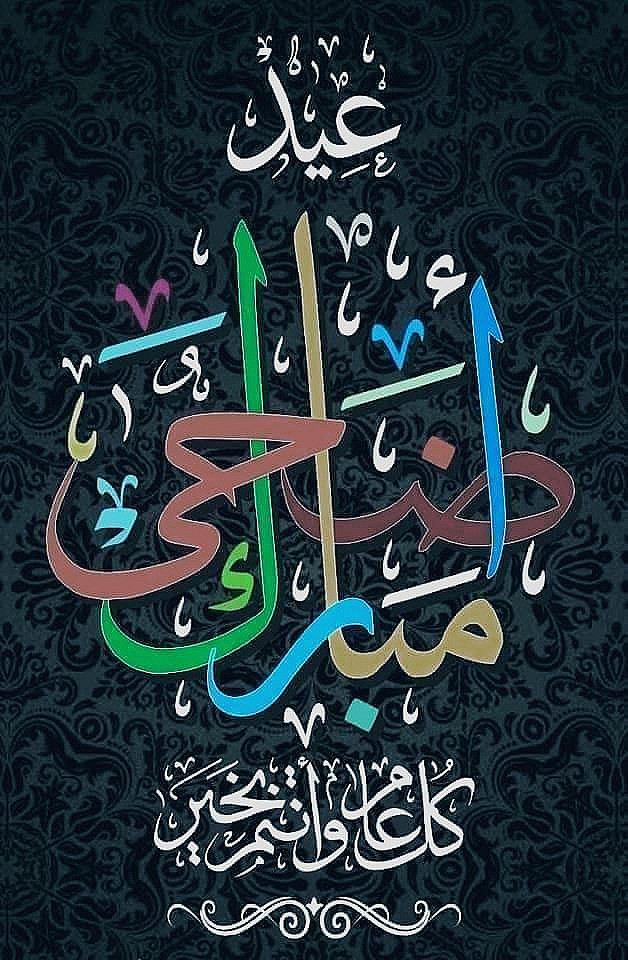 عِيدْ
أضَحَى
مبَارك
كُل عَام وأنتُم بخَير